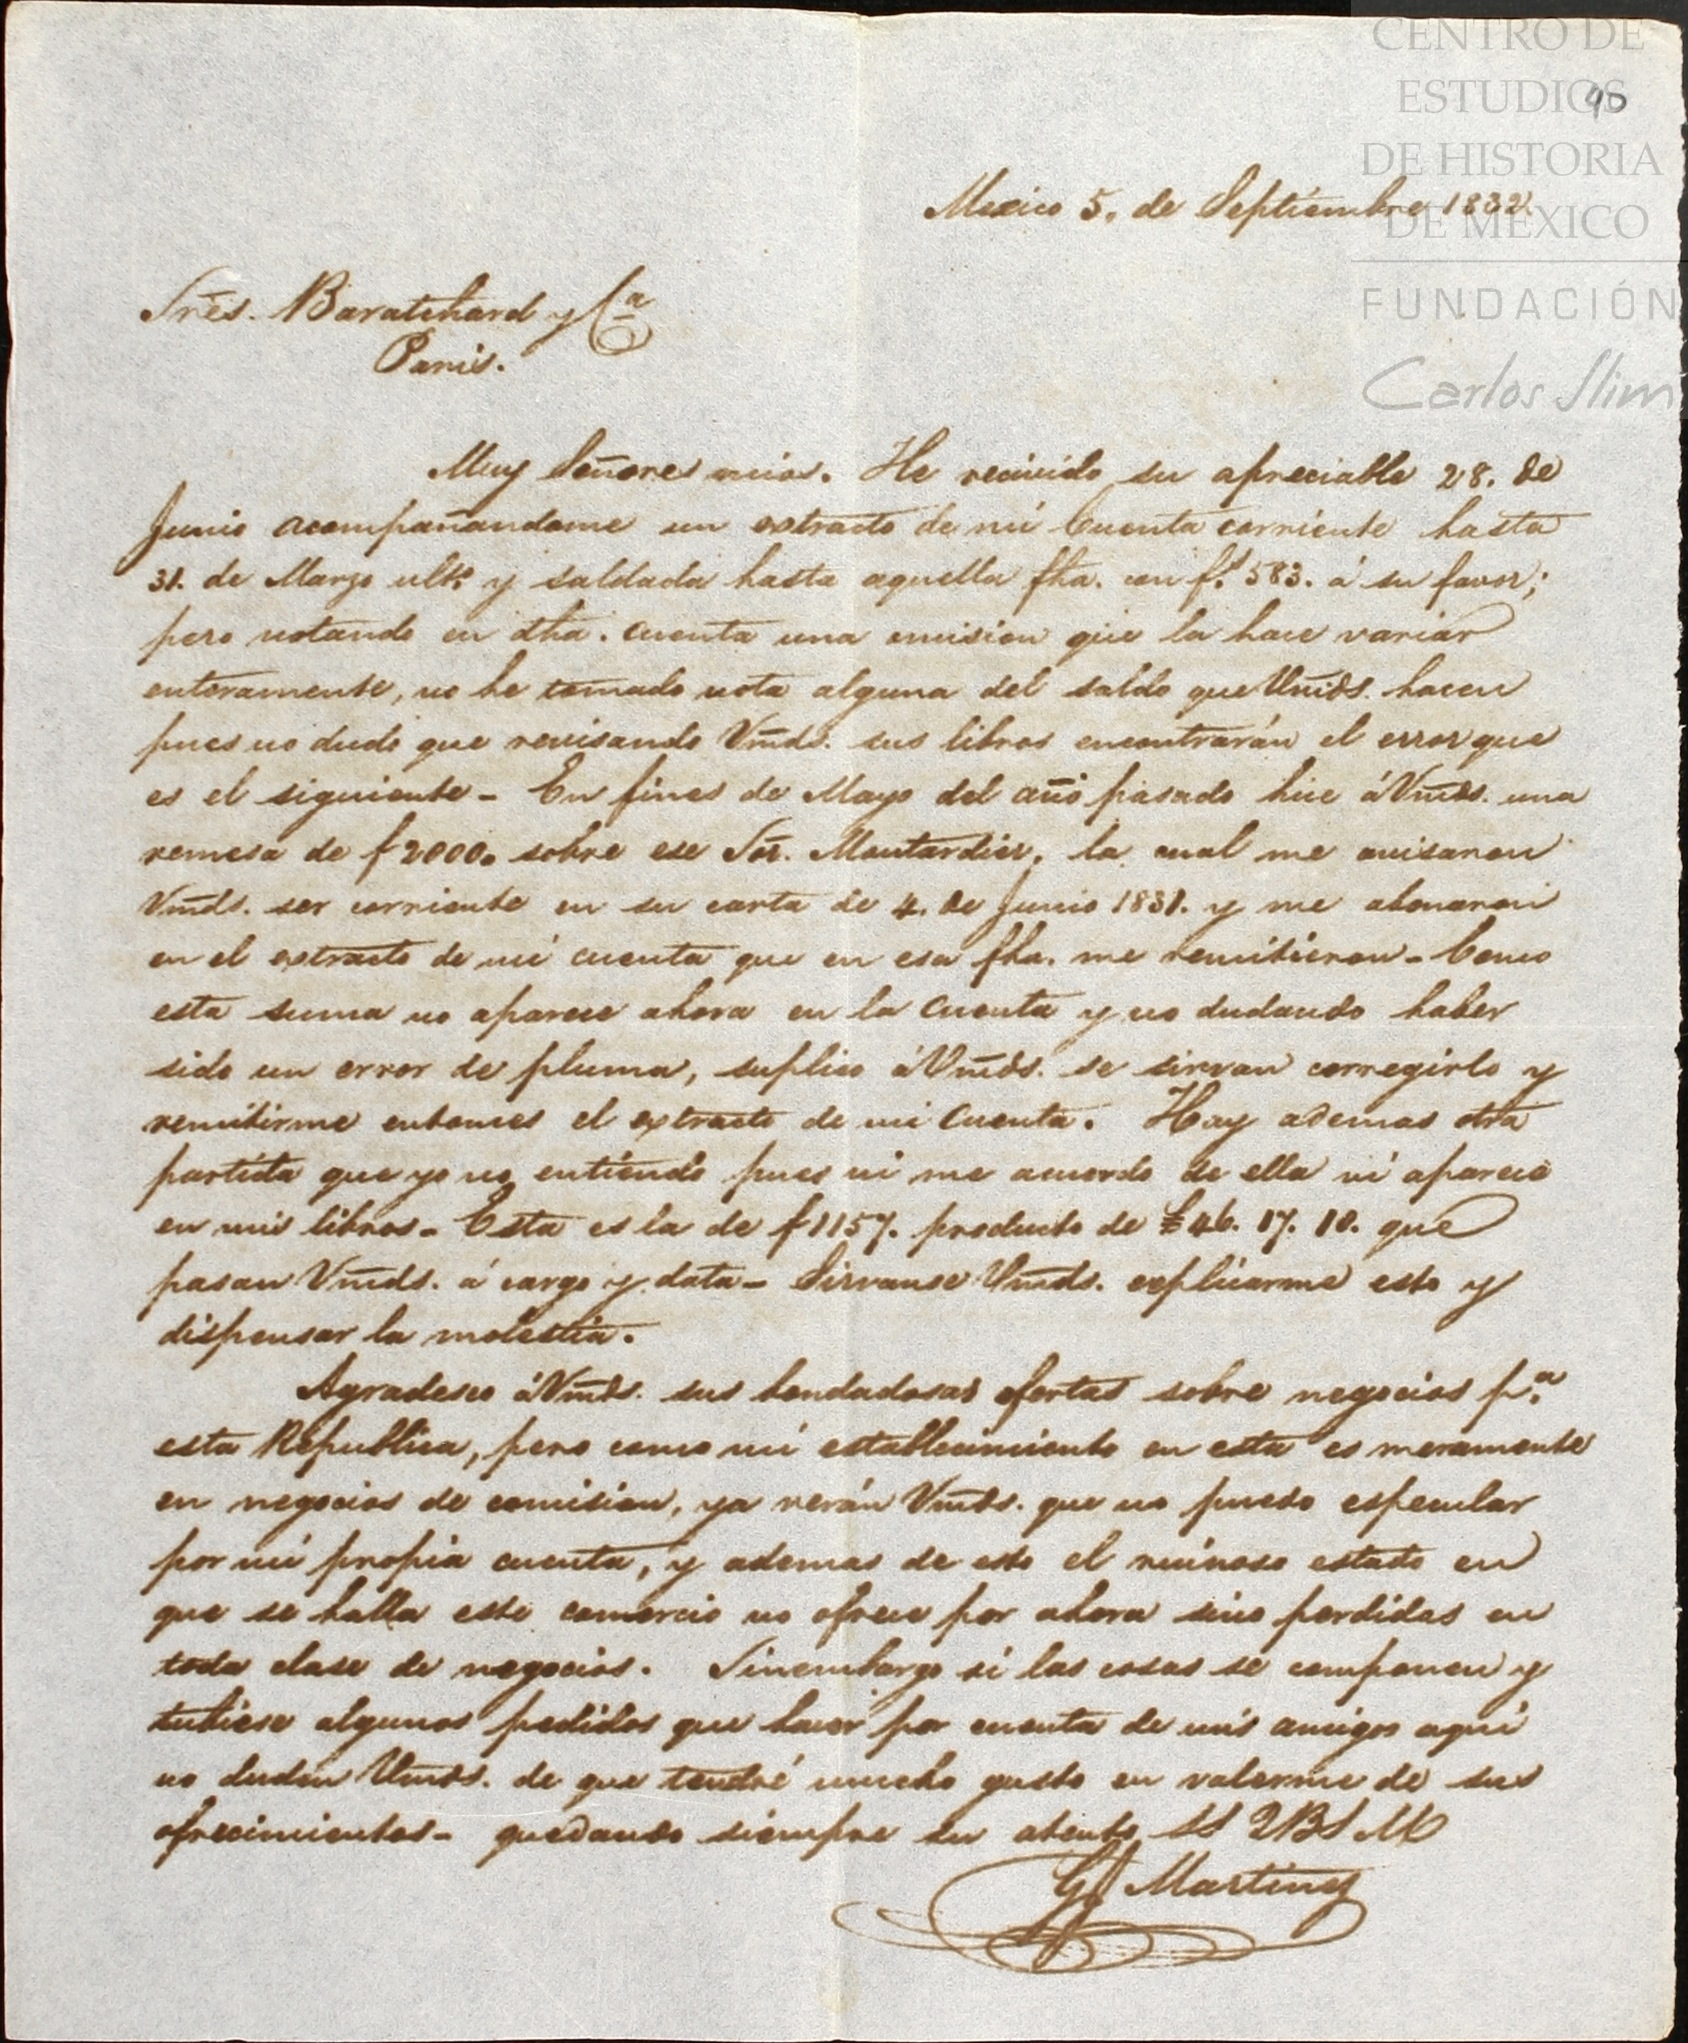 CENTRO DE
ESTUDIOS
DE HISTORIA
DE MÉXICO
FUNDACIÓN
Carlos Slim
40
Mexico 5. de Septiembre 1832.
Sres. Baratchard y Ca
Paris.
Muy Señores mios. He recivido su apreciable 28. de
Junio acompañandome un extracto de mi Cuenta corriente hasta
31. de Marzo ulto. y saldada hasta aquella fha. con fs. 583. á su favor;
pero notando en dha. cuenta una omision que la hace variar
enteramente, no he tomado nota alguna del saldo que Vmds. hacen
pues no dudo que revisando Vmds. sus libros encontrarán el error que
es el siguiente - En fines de Mayo del año pasado hice á Vmds. una
remesa de f 2000. sobre ese Sor. Moutardier, la cual me avisaron
Vmds. ser corriente en su carta de 4. de Junio 1831. y me abonaron
en el extracto de mi cuenta que en esa fha. me remitieron - Como
esta suma no aparece ahora en la Cuenta y no dudando haber
sido un error de pluma, suplico á Vmds. se sirvan corregirlo y
remitirme entonces el extracto de mi Cuenta. Hay ademas otra
partida que yo no entiendo pues ni me acuerdo de ella ni aparece
en mis libros - Esta es la de f 1157. producto de £ 46. 17. 10. que
pasan Vmds. á cargo y data - Sirvanse Vmds. explicarme esto y
dispensar la molestia.
Agradesco á Vmds. sus bondadosas ofertas sobre negocios pa.
esta Republica, pero como mi establecimiento en esta es meramente
en negocios de comision, ya verán Vmds. que no puedo especular
por mi propia cuenta, y ademas de esto el ruinoso estado en
que se halla este comercio no ofrece por ahora sino perdidas en
toda clase de negocios. Sinembargo si las cosas se componen y
tubiese algunos pedidos que hacer por cuenta de mis amigos aqui
no duden Vmds. de que tendré mucho gusto en valerme de sus
ofrecimientos - quedando siempre su atento SS QBSM
G Martinez